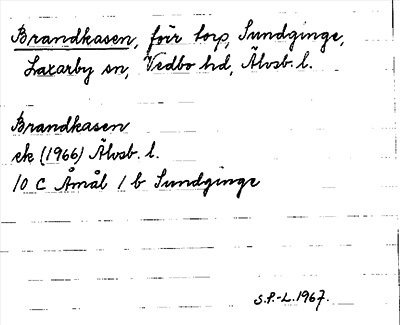 Brandkasen, förr torp, Sundginge,
Laxarby sn, Vedbo hd, Älvsb. l.
Brandkasen
ek (1966) Älvsb. l.
10 C Åmål 1 b Sundginge
S.F.-L. 1967.